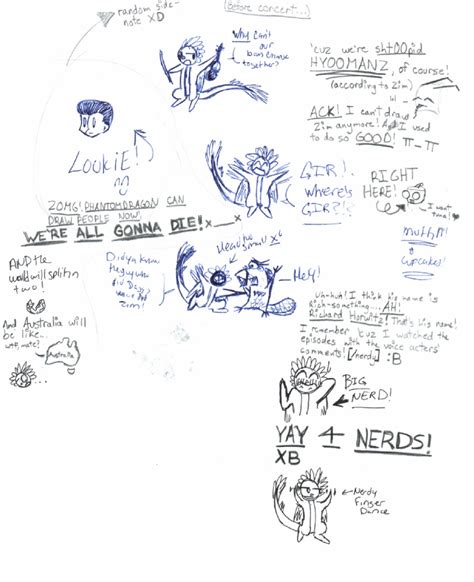 random side-
note XD
(Before concert...)
Why can't
our
together?
'cuz we're sht00pid
HYOOMANZ, of course!
(according to Zim)
ACK! I can't draw
Zim anymore! And I used
to do so GOOD! π-π
LOOKIE!
ZOMG! PHANTOMDRAGON CAN
DRAW PEOPLE NOW!
WE'RE ALL GONNA DIE! x__x
GIR!
where's
GIR?!
RIGHT
HERE!
I want
tuna!
muffin
&
cupcakes!
AND the
world will split in
two!
And Australia will
be like...
WTF, mate?
Australia
Didya know
the guy who
did Dag
was also
Zim?
Head too
small XD
HEY!
Uh-huh! I think his name is
Rich-something... AH!
Richard Horwitz! That's his name!
I remember 'cuz I watched the
episodes with the voice actors'
comments! [/nerdy] :B
BIG
NERD!
YAY 4 NERDS!
XB
Nerdy
Finger
Dance